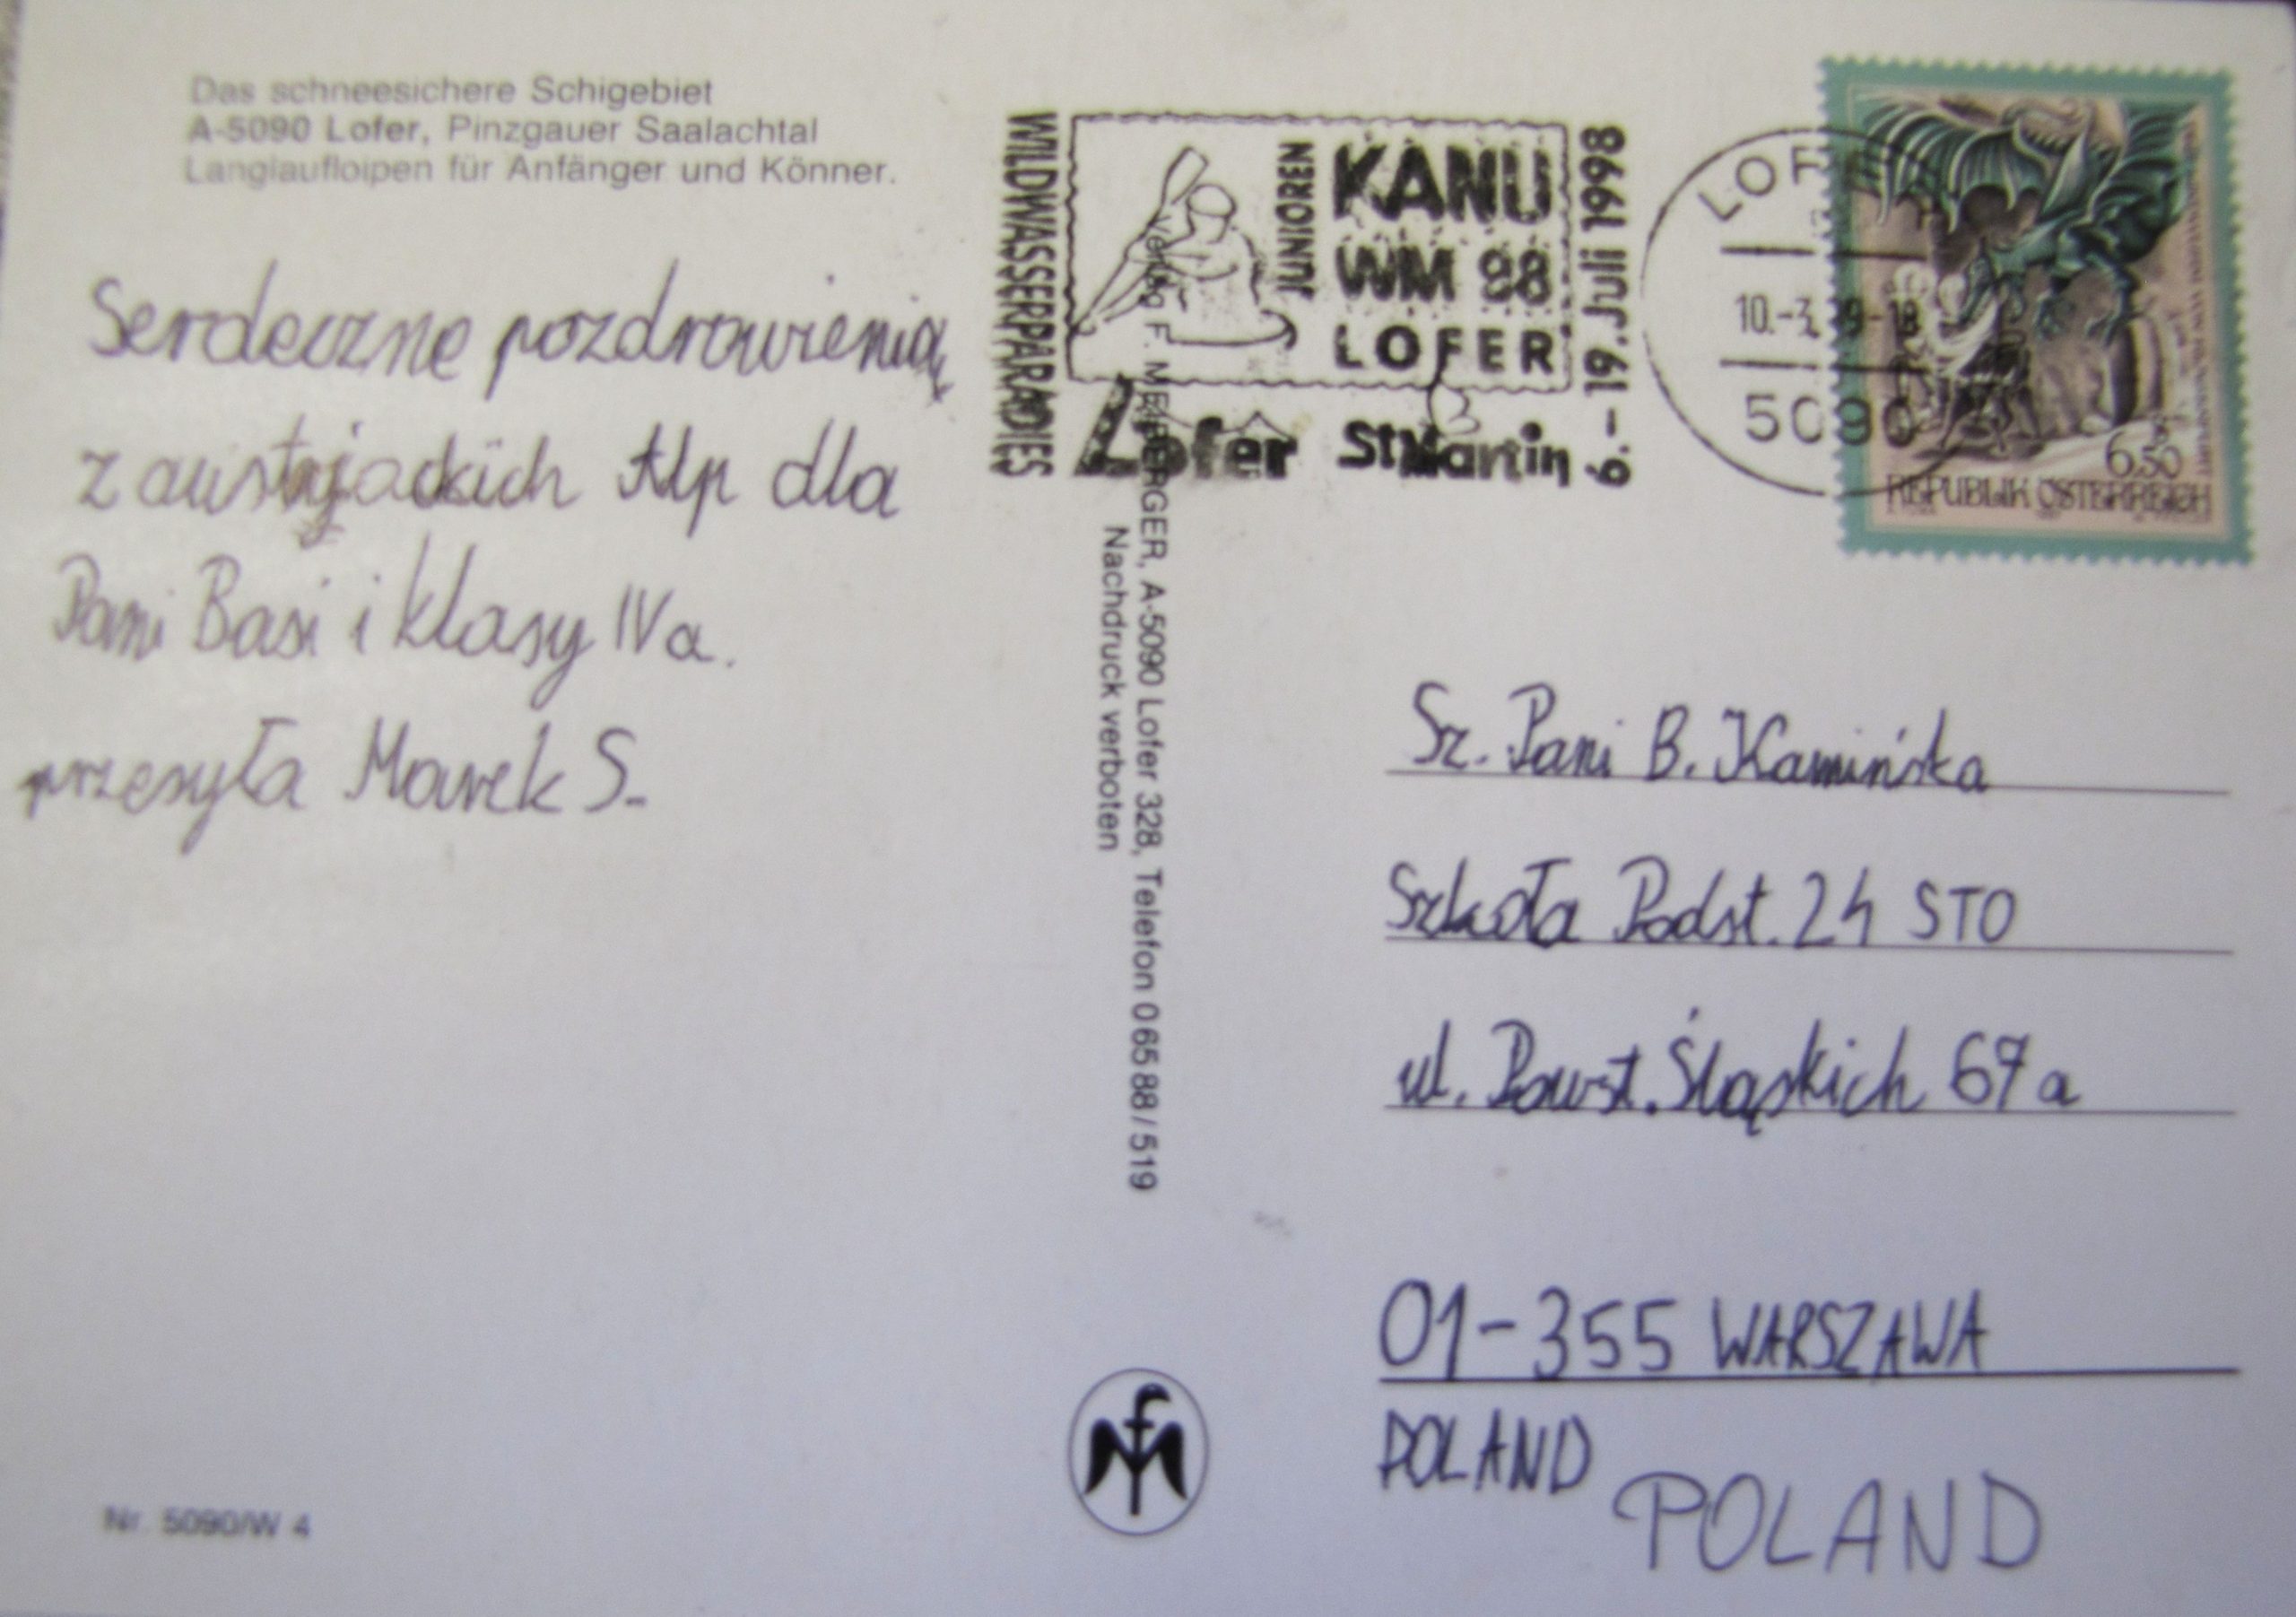 Das schneesichere Schigebiet
A-5090 Lofer, Pinzgauer Saalachtal
Langlaufloipen für Anfänger und Könner.
Serdeczne pozdrowienia
z austrjackich Alp dla
Pani Basi i klasy IV a.
przesyła Marek S.
Nr. 5090/W 4
WILDWASSERPARADIES
JUNIOREN
KANU
WM 98
LOFER
9. - 19. Juli 1998
Lofer St. Martin
Verlag F. MEIBERGER, A-5090 Lofer 328, Telefon 0 65 88 / 519
Nachdruck verboten
5090
6.50
REPUBLIK ÖSTERREICH
Sz. Pani B. Kamińska
Szkoła Podst. 24 STO
ul. Powst. Śląskich 67a
01-355 WARSZAWA
POLAND
POLAND